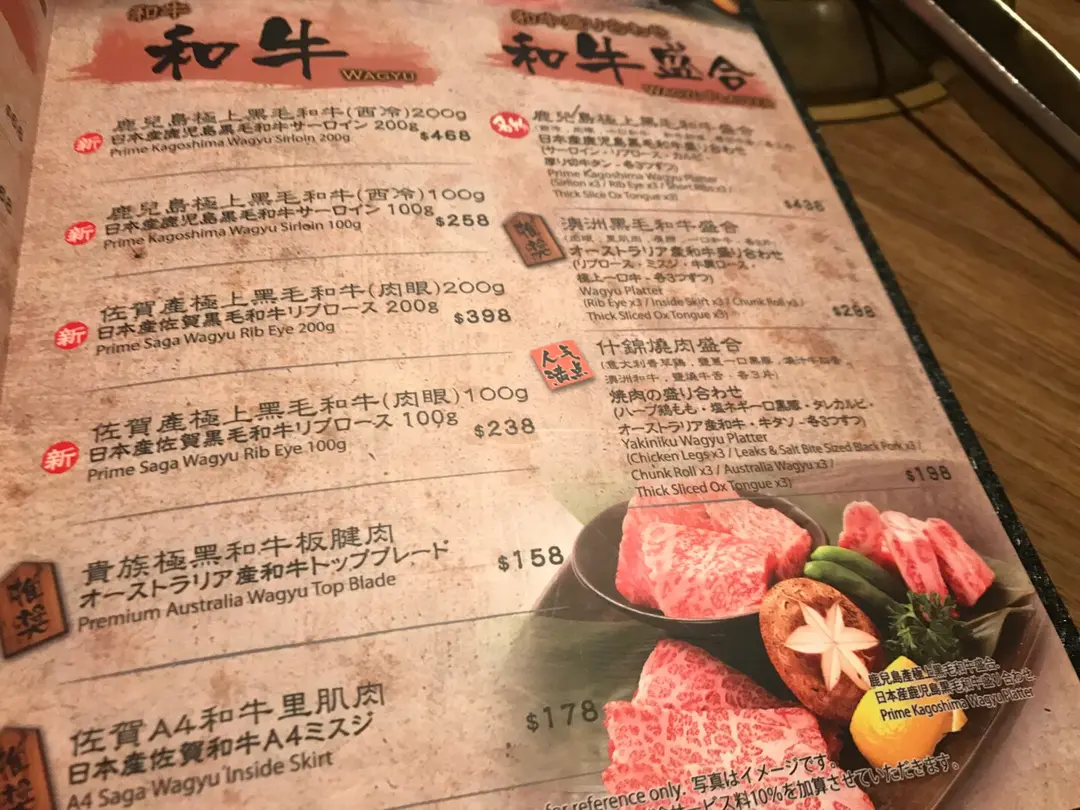 和牛
和牛 WAGYU
鹿兒島極上黑毛和牛(西冷)200g
日本産鹿児島黒毛和牛サーロイン 200g
Prime Kagoshima Wagyu Sirloin 200g
$468
新
鹿兒島極上黑毛和牛(西冷)100g
日本産鹿児島黒毛和牛サーロイン 100g
Prime Kagoshima Wagyu Sirloin 100g
$258
新
佐賀產極上黑毛和牛(肉眼)200g
日本産佐賀黒毛和牛リブロース 200g
Prime Saga Wagyu Rib Eye 200g
$398
新
佐賀產極上黑毛和牛(肉眼)100g
日本産佐賀黒毛和牛リブロース 100g
Prime Saga Wagyu Rib Eye 100g
$238
新
貴族極黑和牛板腱肉
オーストラリア産和牛トップブレード
Premium Australia Wagyu Top Blade
$158
推奨
佐賀A4和牛里肌肉
日本産佐賀和牛A4ミスジ
A4 Saga Wagyu Inside Skirt
$178
和牛盛り合わせ
和牛盛合
鹿兒島極上黑毛和牛盛合
日本産鹿児島黒毛和牛盛り合わせ
(サーロイン・リブロース・カルビ・
厚り切牛タン・各3つずつ)
Prime Kagoshima Wagyu Platter
(Sirlion x3 / Rib Eye x3 / Short Ribs x3 /
Thick Slice Ox Tongue x3)
$438
推奨
澳洲黑毛和牛盛合
オーストラリア産和牛盛り合わせ
(リブロース・ミスジ・牛肩ロース・
極上一口牛・各3つずつ)
Wagyu Platter
(Rib Eye x3 / Inside Skirt x3 / Chunk Roll x3 /
Thick Sliced Ox Tongue x3)
$298
人気
満点
什錦燒肉盛合
澳洲和牛，鹽燒牛舌，各3片)
焼肉の盛り合わせ
(ハーブ鶏もも・塩ネギ一口黒豚・タレカルビ・
オーストラリア産和牛・牛タン・各3つずつ)
Yakiniku Wagyu Platter
(Chicken Legs x3 / Leaks & Salt Bite Sized Black Pork x3 /
Chunk Roll x3 / Australia Wagyu x3 /
Thick Sliced Ox Tongue x3)
$198
鹿兒島産極上黑毛和牛盛合
日本産鹿児島黒毛和牛盛り合わせ
Prime Kagoshima Wagyu Platter
for reference only. 写真はイメージです。
サービス料10%を加算させていただきます。